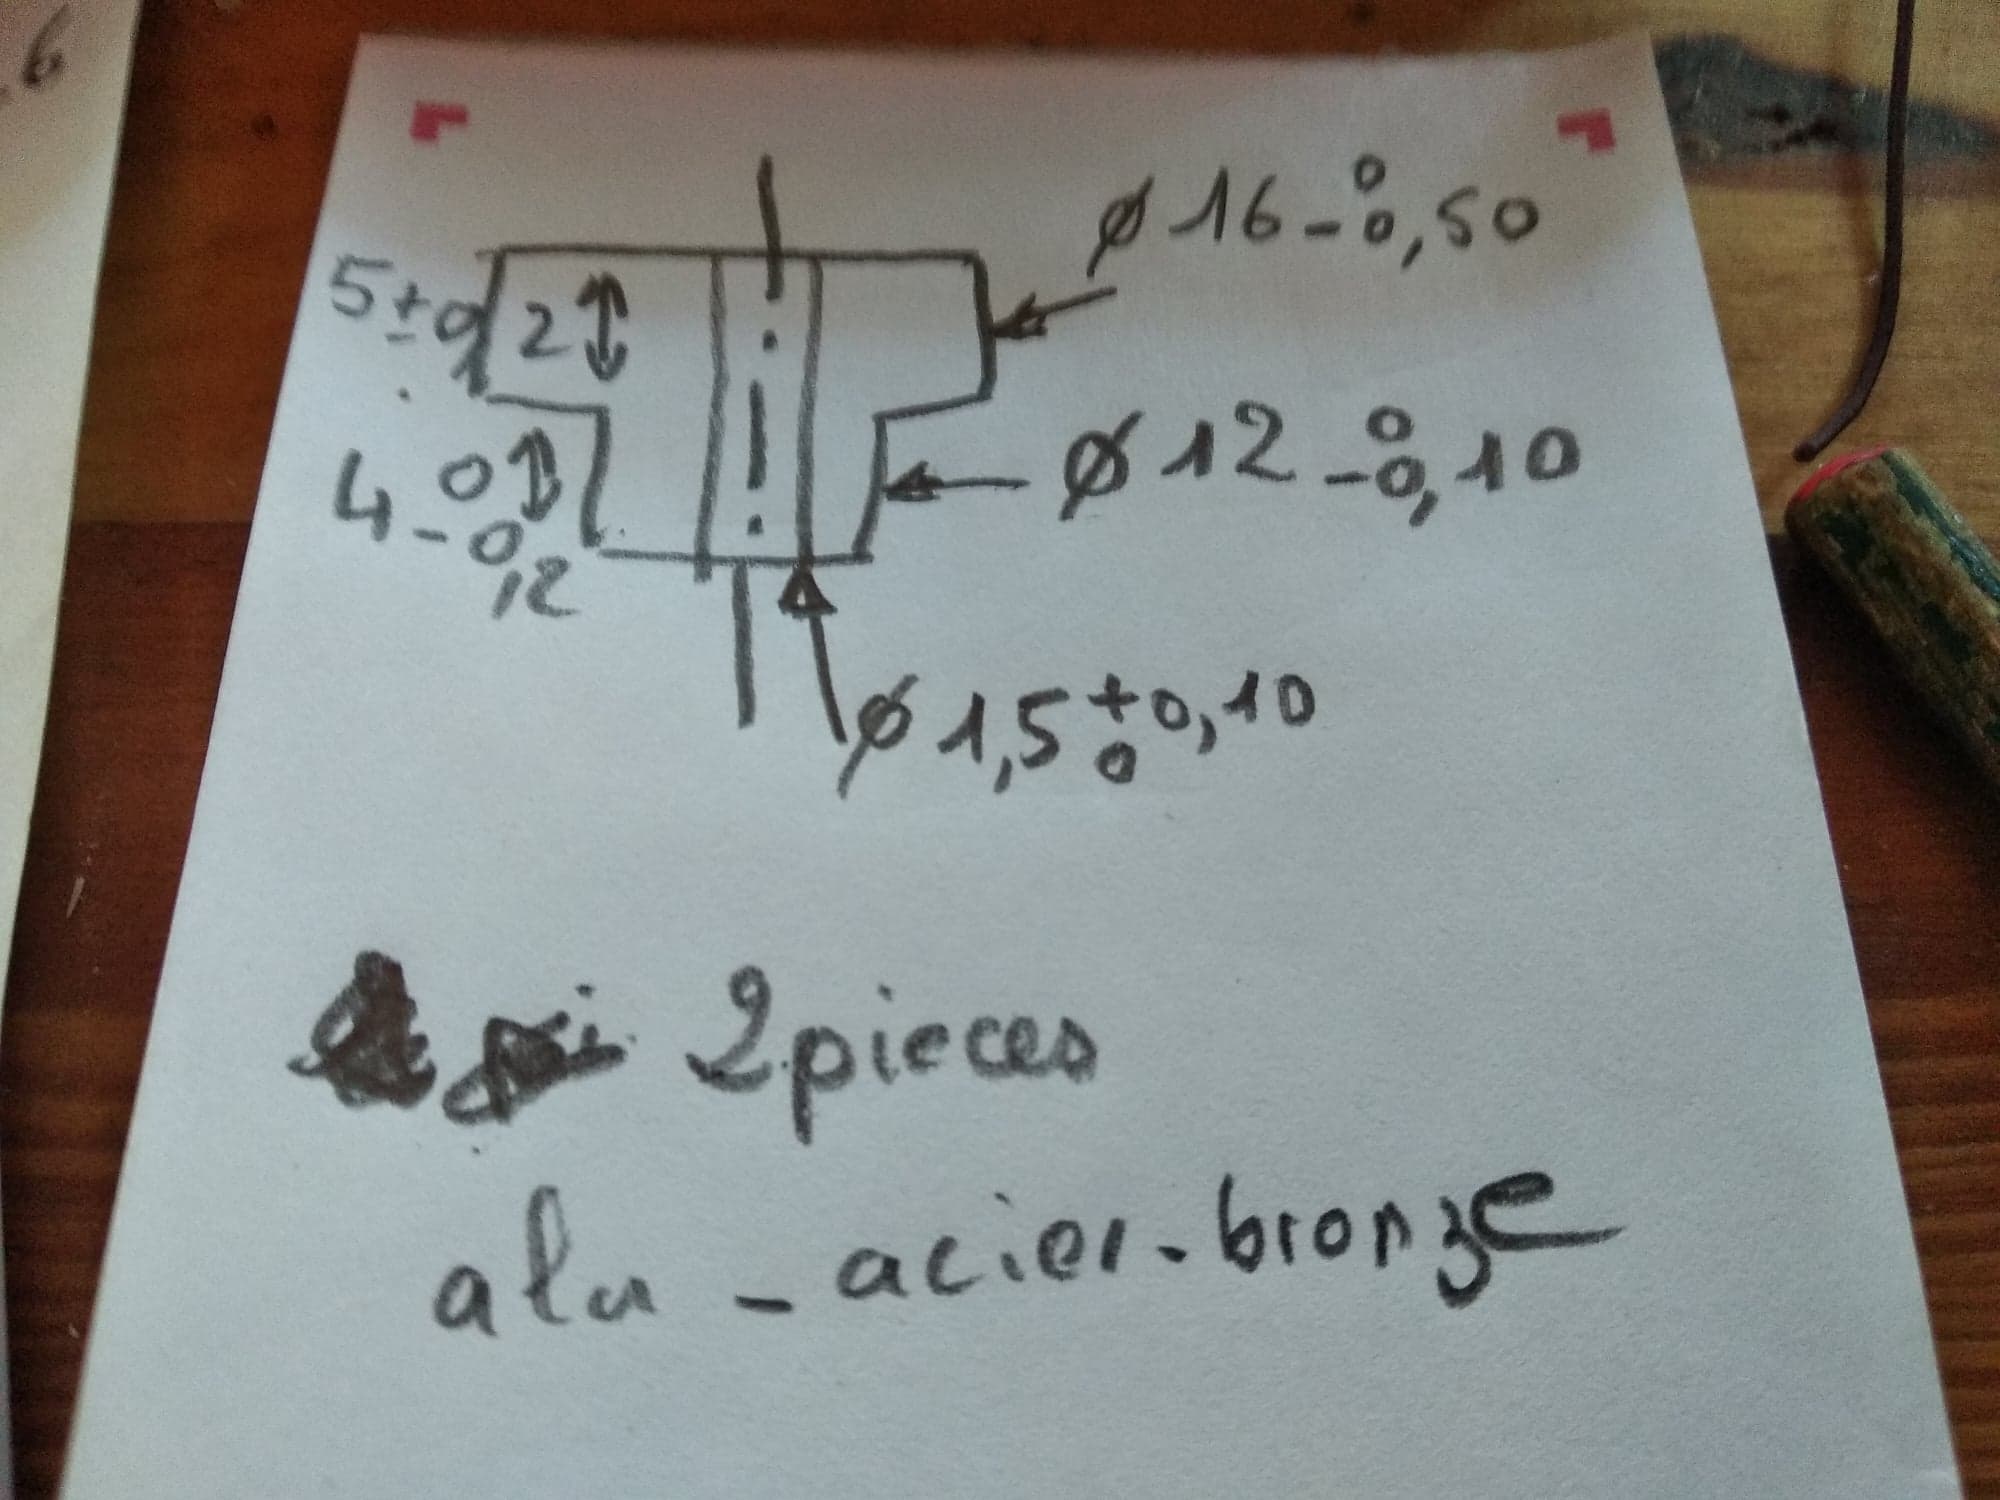 6
ø 16 -0/0,50
5 ± 0,2
ø 12 0/-0,10
4 0/-0,2
ø 1,5 +0,10/0
2 pieces
alu - acier - bronze